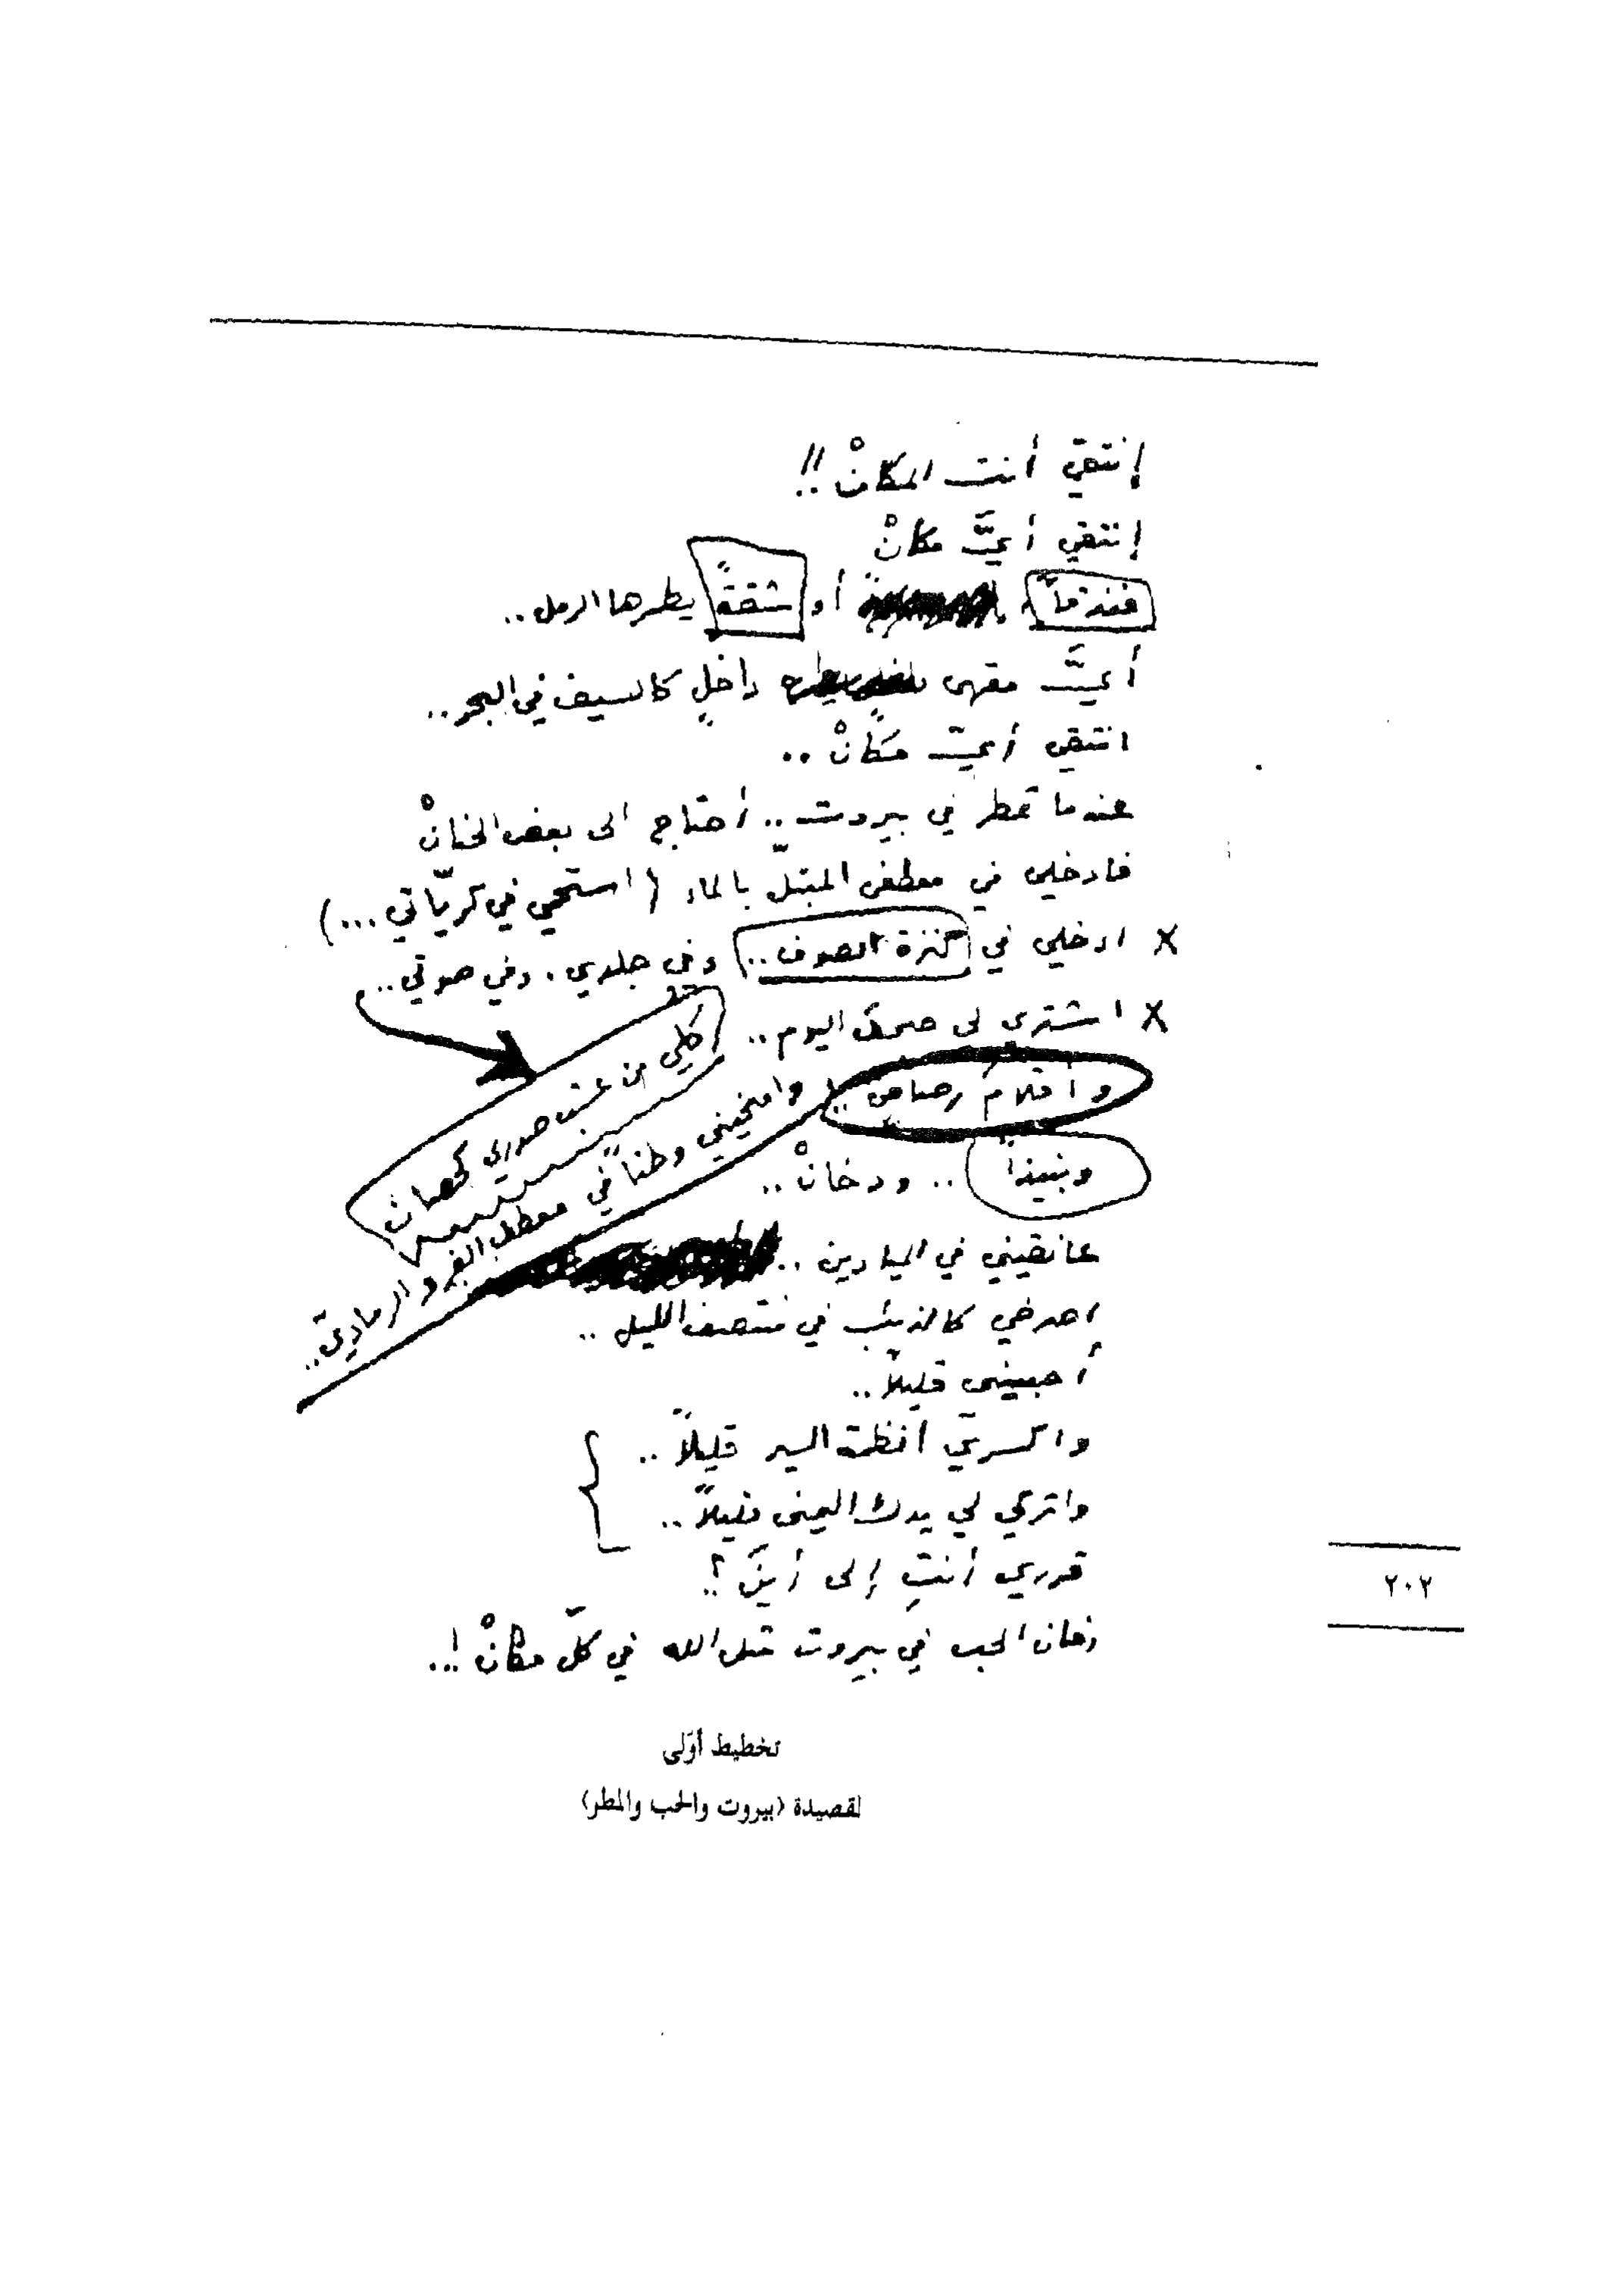 إنتقي أنت المكانْ !!
إنتقي أيَّ مكانْ
فندقاً أو شقةً يطمرها الرمل ..
أيَّ مقهى داخلٍ كالسيف في البحر ..
انتقي أيّ مكانْ ..
عندما تمطر في بيروت .. أحتاج الى بعض الحنانْ
فادخلي في معطفي المبتلّ بالماء (استحمي في كريّاتي ...)
ادخلي في كنزة الصوف .. وفي جلدي . وفي صوتي ..
كلي من عشب صدري كحصان
اشتري لي صحف اليوم ..
وأقلامَ رصاص ..
وامنحيني وطناً في معطف الفرو الرماديّ ..
ونبيذاً .. ودخانْ ..
عانقيني في الميادين ..
اصرخي كالذئب في منتصف الليل ..
أحبيني قليلاً ..
واكسري أنظمة السير قليلاً ..
واتركي لي يدك اليمنى قليلاً ..
قدري أنتِ إلى أينَ ؟
زمان الحب في بيروت مثل الله في كلّ مكانْ !..
٢٠٢
تخطيط أوّلي
لقصيدة (بيروت والحب والمطر)